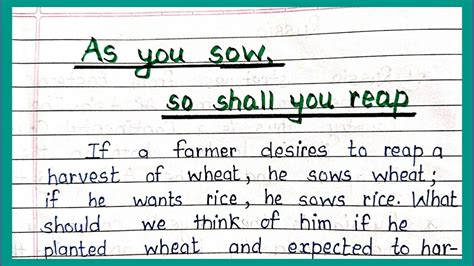 As you sow,
so shall you reap
If a farmer desires to reap a
harvest of wheat, he sows wheat;
if he wants rice, he sows rice. What
should we think of him if he
planted wheat and expected to har-